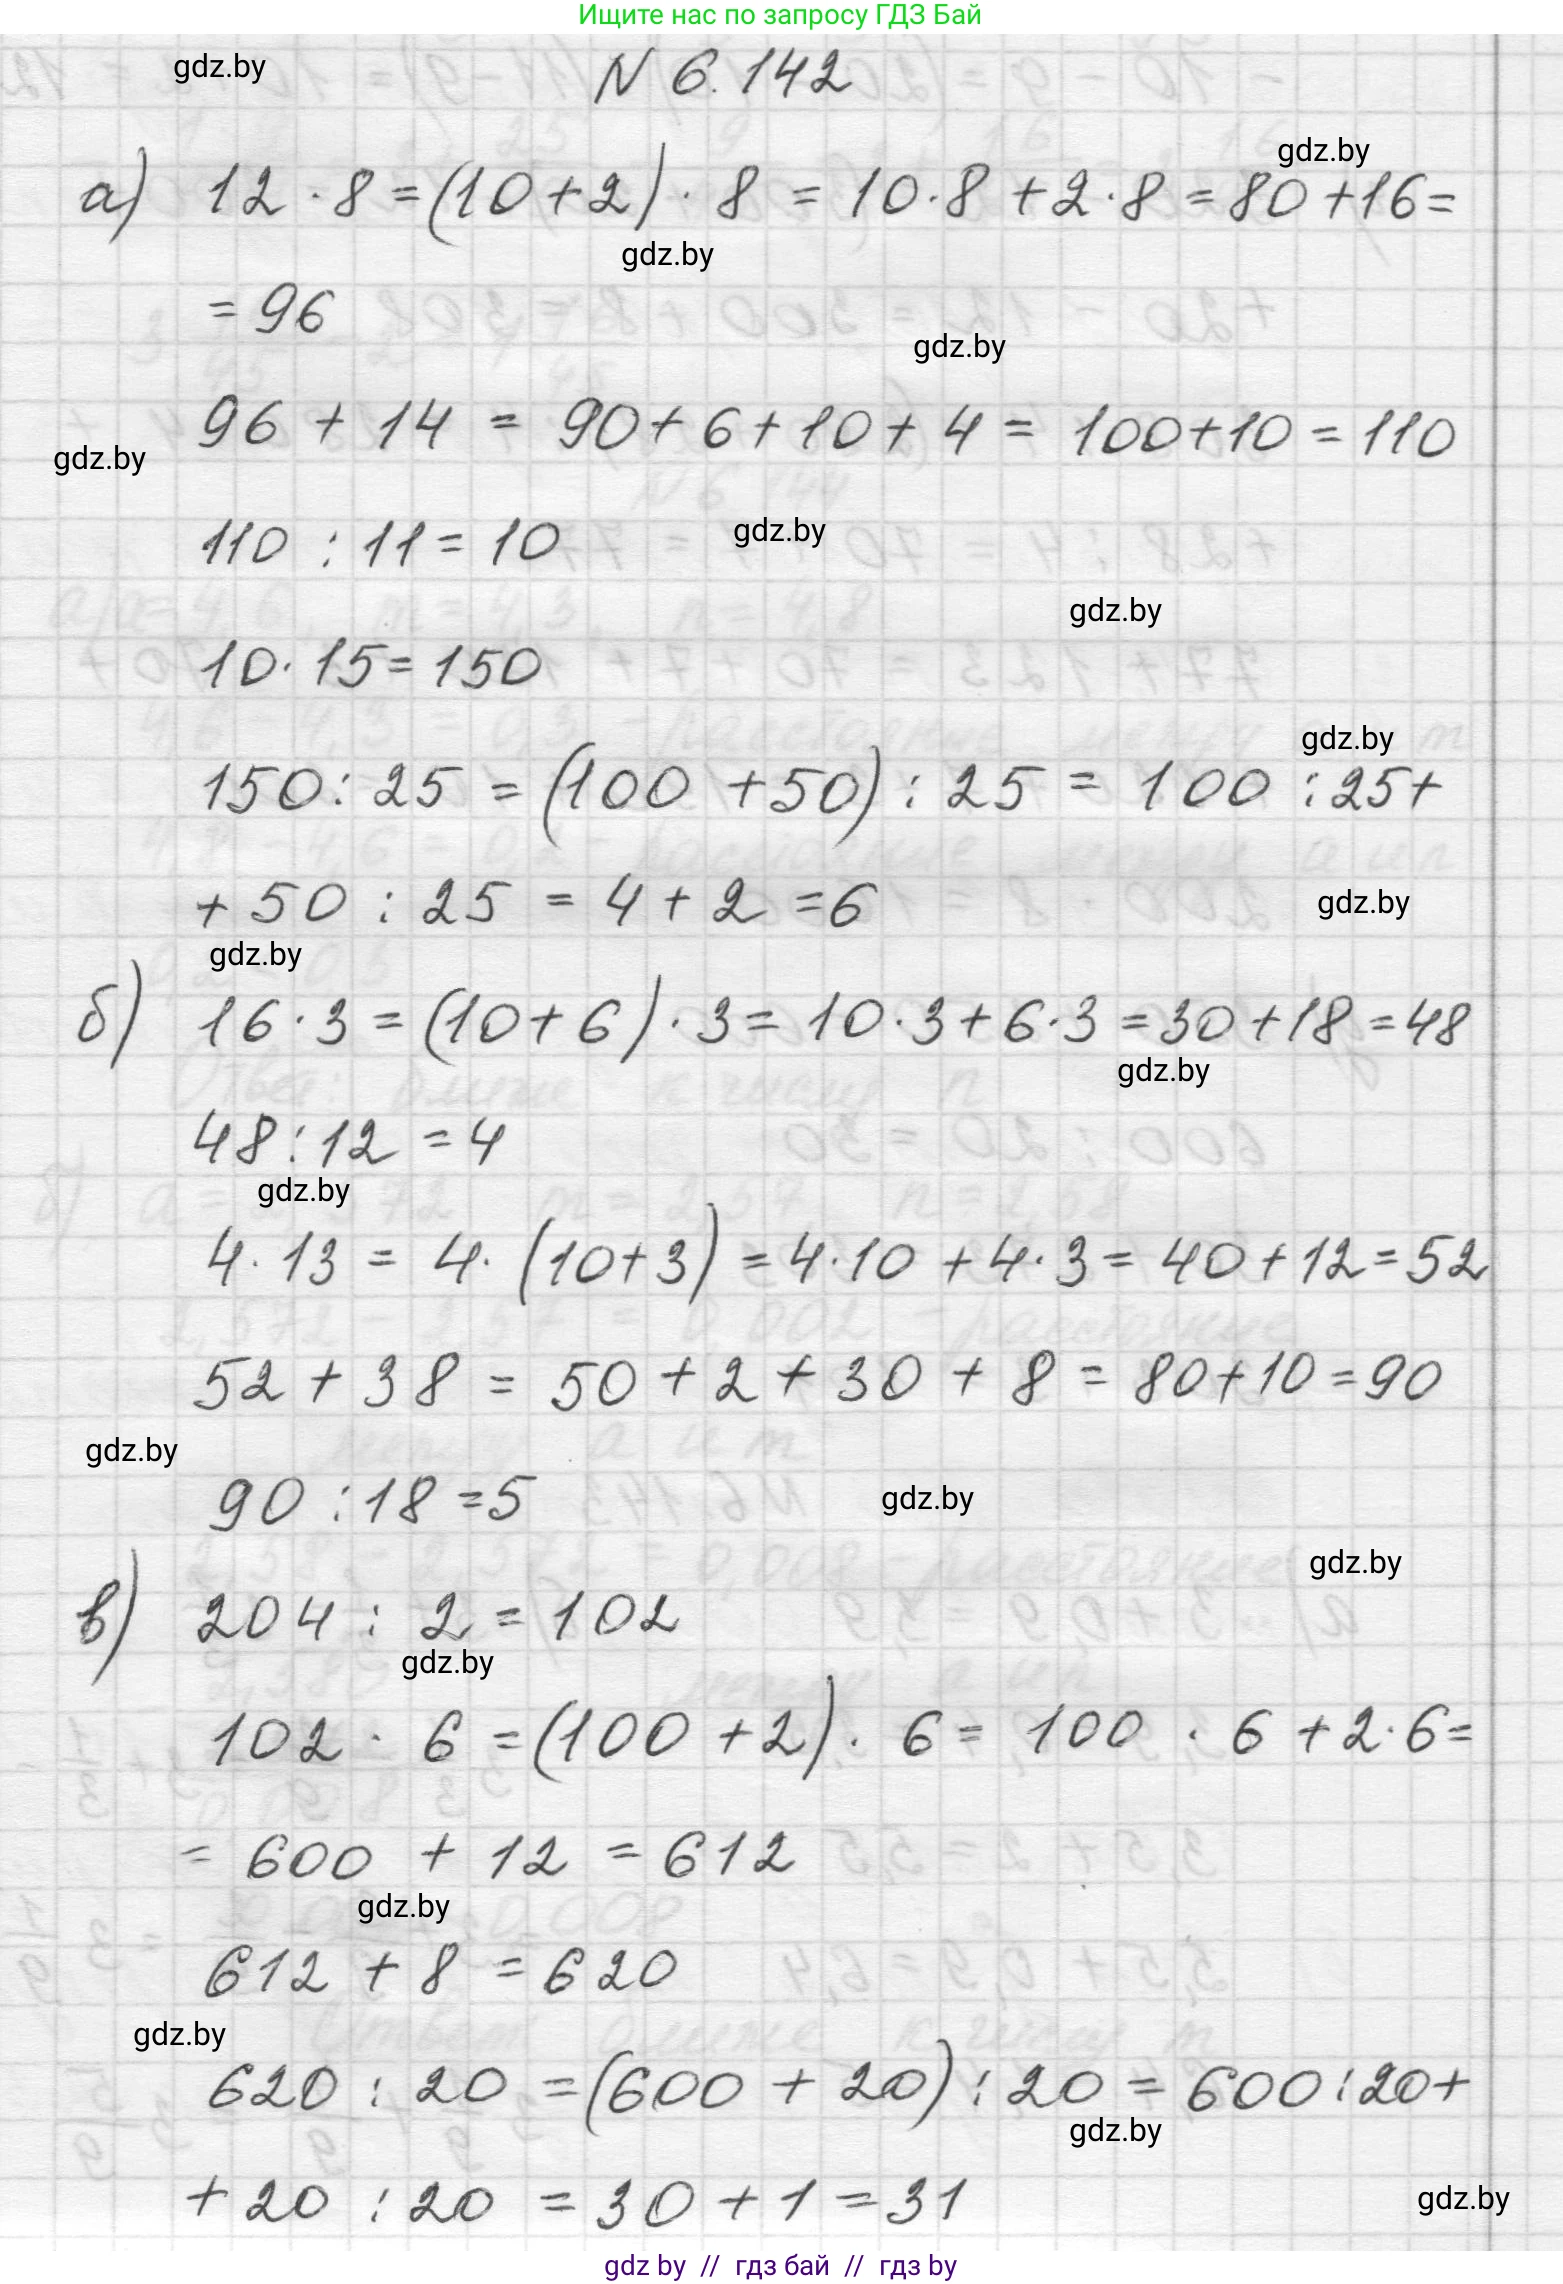 Ищите нас по запросу ГДЗ Бай
gdz.by
N 6.142
gdz.by
а) 12 · 8 = (10 + 2) · 8 = 10 · 8 + 2 · 8 = 80 + 16 =
gdz.by
= 96
gdz.by
96 + 14 = 90 + 6 + 10 + 4 = 100 + 10 = 110
gdz.by
gdz.by
110 : 11 = 10
gdz.by
10 · 15 = 150
gdz.by
150 : 25 = (100 + 50) : 25 = 100 : 25 +
+ 50 : 25 = 4 + 2 = 6
gdz.by
gdz.by
б) 16 · 3 = (10 + 6) · 3 = 10 · 3 + 6 · 3 = 30 + 18 = 48
gdz.by
48 : 12 = 4
gdz.by
4 · 13 = 4 · (10 + 3) = 4 · 10 + 4 · 3 = 40 + 12 = 52
52 + 38 = 50 + 2 + 30 + 8 = 80 + 10 = 90
gdz.by
90 : 18 = 5
gdz.by
gdz.by
в) 204 : 2 = 102
gdz.by
102 · 6 = (100 + 2) · 6 = 100 · 6 + 2 · 6 =
= 600 + 12 = 612
gdz.by
612 + 8 = 620
gdz.by
620 : 20 = (600 + 20) : 20 = 600 : 20 +
gdz.by
+ 20 : 20 = 30 + 1 = 31
gdz.by
gdz by // гдз бай // gdz by